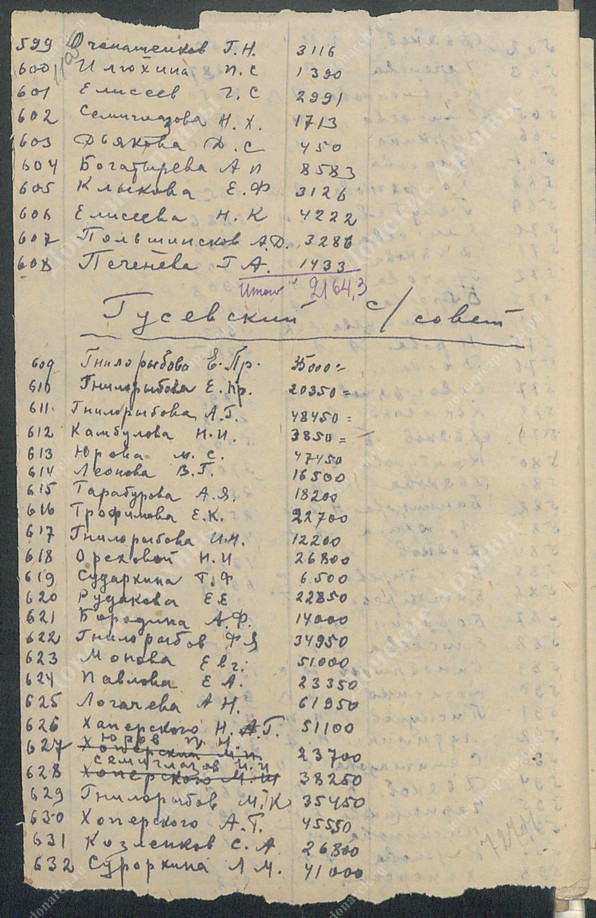 599 Очонашенков Г.Н. 3116
600 Илюхина П.С 1390
601 Елисеев Г.С 2991
602 Семиглазова Н.Х. 1713
603 Дьякова Д.С 450
604 Богатырева А П 8583
605 Клыкова Е.Ф 3126
606 Елисеева Н.К 4222
607 Польшинсков А.Д. 3286
608 Печенева Г А. 1433
Итого
Гусевский с/совет
609 Гнилорыбова Е.Пр. 35000=
610 Гнилорыбова Е.Пр. 20350=
611. Гнилорыбова А.Г. 48450=
612 Камбулова Н.И. 3850=
613 Юрова М.С. 47450
614 Леонова В.Г. 16500
615 Тарабурова А.Я. 18200
616 Трофимова Е.К. 22700
617 Гнилорыбова И.Н. 12200
618 Ореховой Н.И 26800
619 Сударкина Т.Ф 6.500
620 Рудакова Е.Е 22850
621 Бородина А.Ф. 14000
622 Гнилорыбов Ф Я 34950
623 Монова Евг. 51000
624 Павлова Е А. 23350
625 Логачева А Н. 61950
626 Хоперского Н.А.Г. 51100
Юров
627 Хоперский М.И. 23700
Семиглазов И.И
628 Хоперского М.И 38250
629 Гнилорыбов М.К 35450
630 Хоперского А.Г. 45550
631 Козленков С.А 26800
632 Суроркина Л.М. 41000